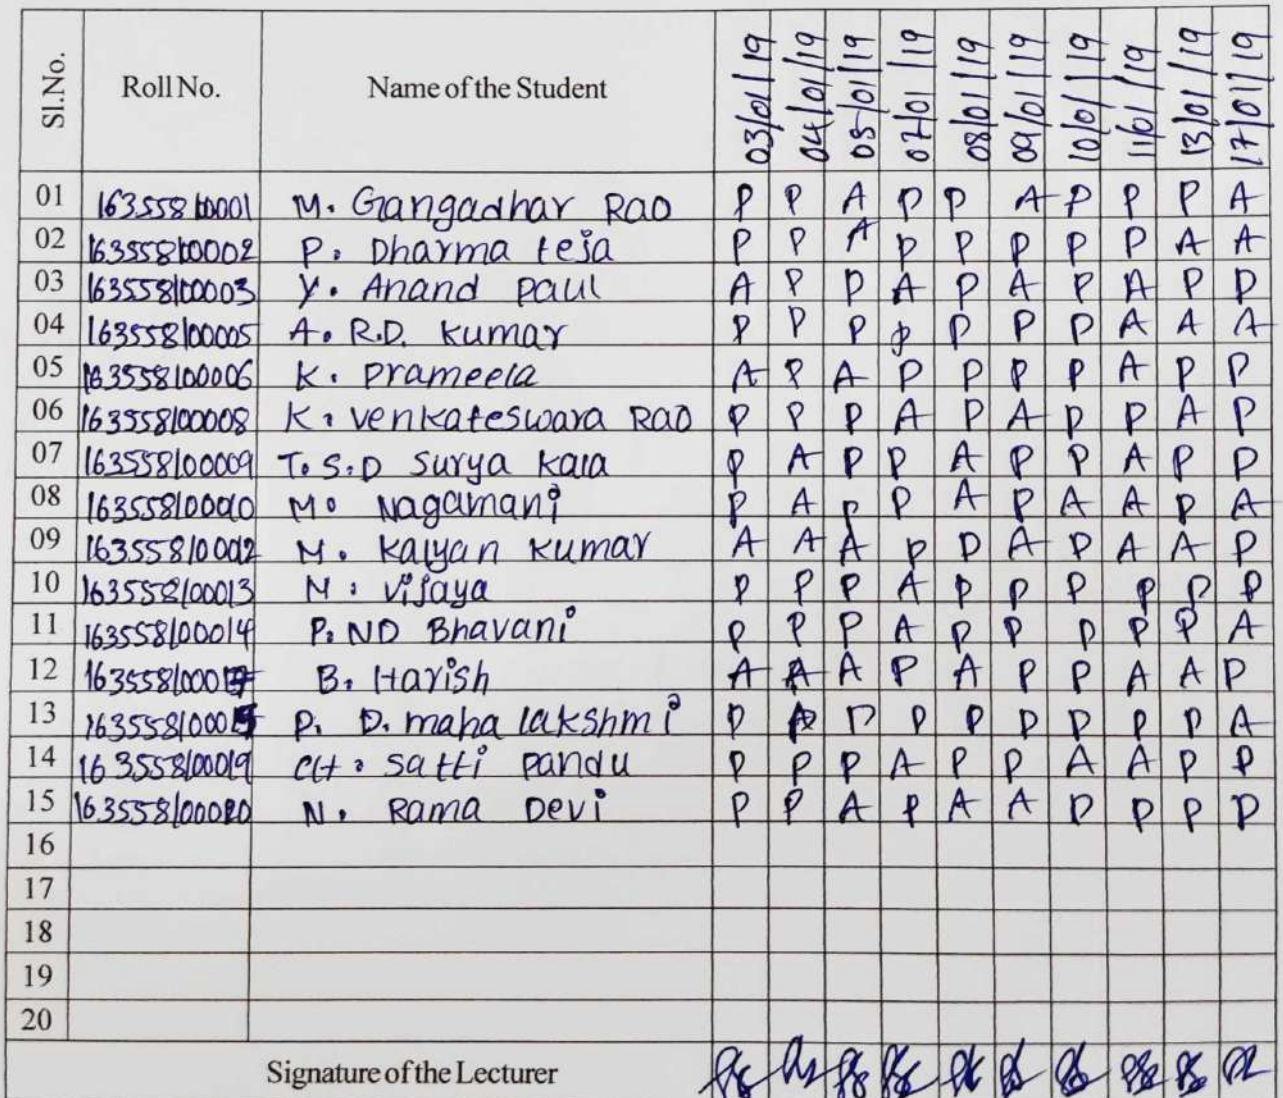 Sl.No. Roll No. Name of the Student 03/01/19 04/01/19 05/01/19 07/01/19 08/01/19 09/01/19 10/01/19 11/01/19 13/01/19 17/01/19
01 163558100001 M. Gangadhar Rao P P A P P A P P P A
02 163558100002 P. Dharma teja P P A P P P P P A A
03 163558100003 Y. Anand paul A P P A P A P A P P
04 163558100005 A. R.D. kumar P P P P P P P A A A
05 163558100006 K. prameela A P A P P P P A P P
06 163558100008 K. venkateswara Rao P P P A P A P P A P
07 163558100009 T.S.D Surya kala P A P P A P P A P P
08 163558100010 M. Nagamani P A P P A P A A P A
09 163558100012 M. kalyan kumar A A A P P A P A A P
10 163558100013 N. vijaya P P P A P P P P P P
11 163558100014 P. ND Bhavani P P P A P P P P P A
12 B. Harish A A A P A P P A A P
13 P. D. maha lakshmi P P P P P P P P A
14 163558100019 CH. satti pandu P P P A P P A A P P
15 163558100020 N. Rama Devi P P A P A A P P P P
16
17
18
19
20
Signature of the Lecturer